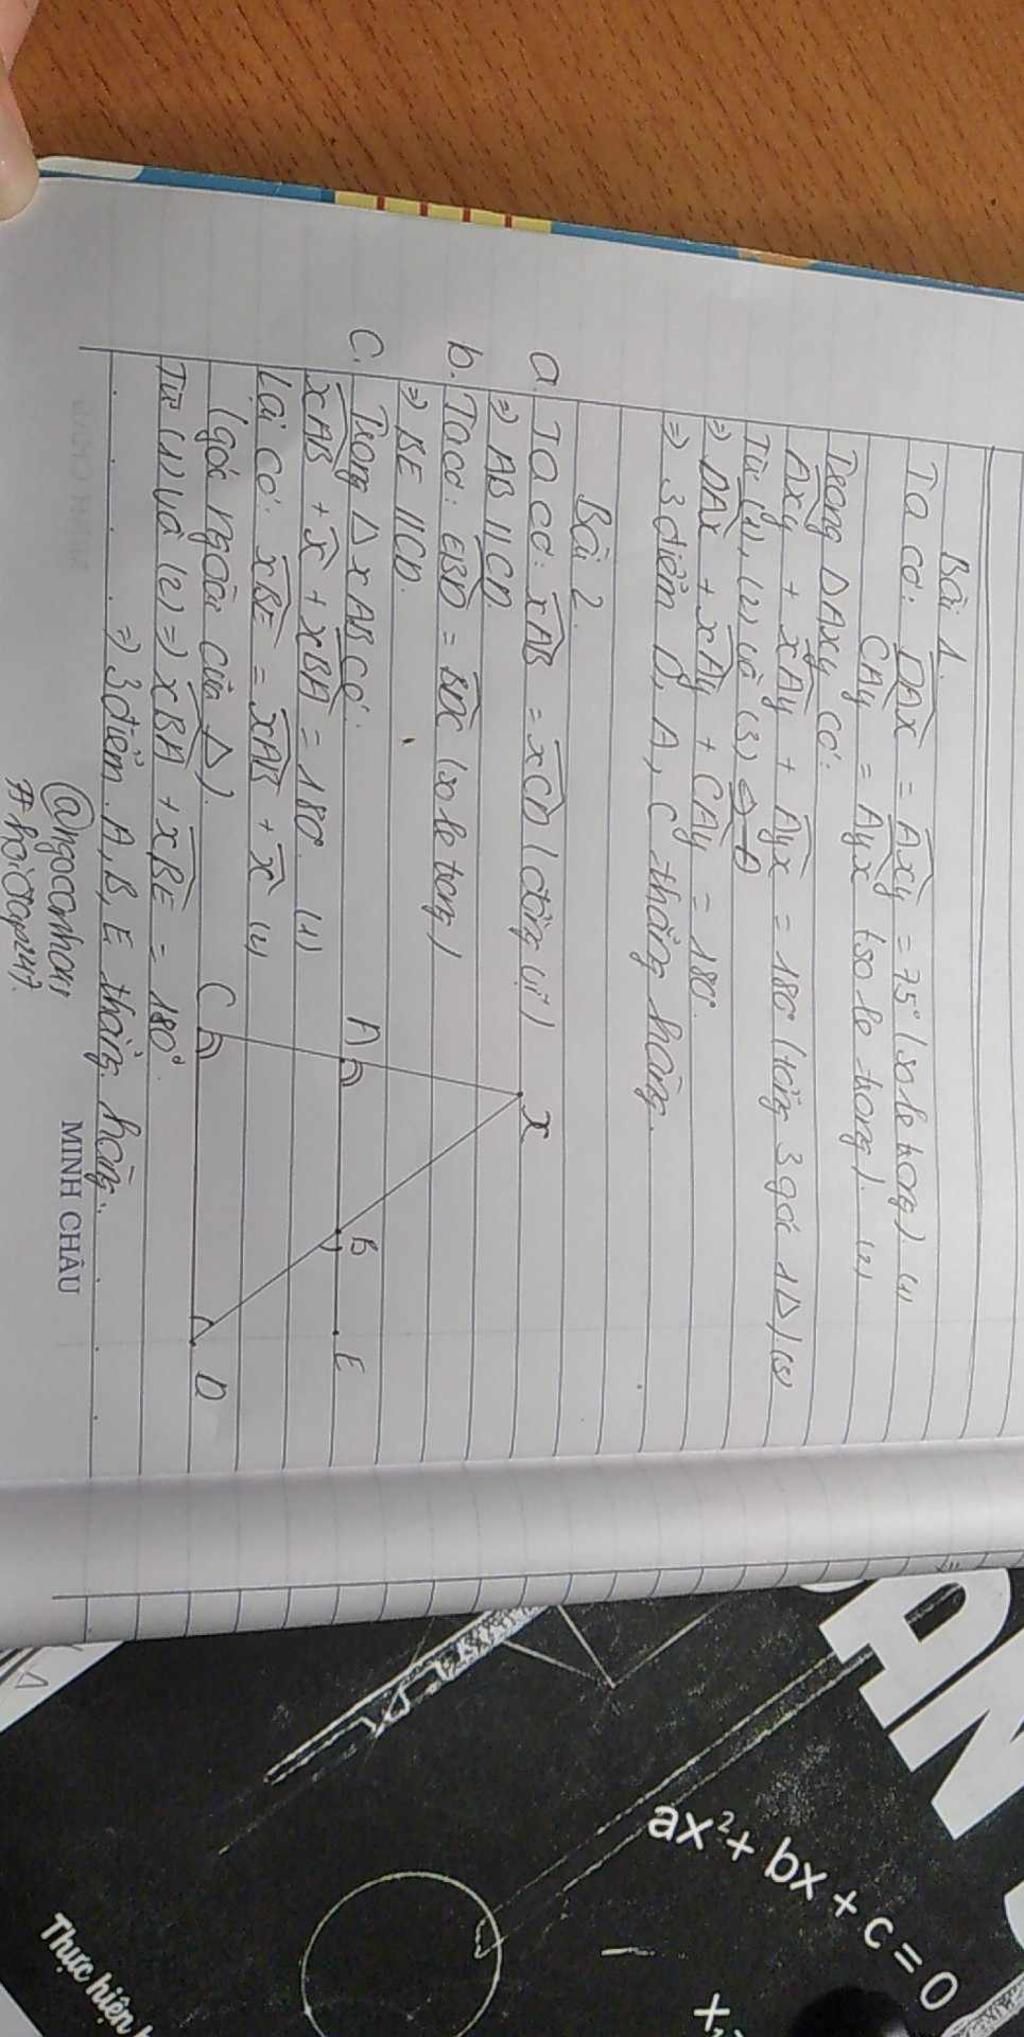 Bài 1.
Ta có: DAx = Axy = 75° (so le trong) (1)
CAy = Ayx (so le trong). (2)
Trong ΔAxy có:
Axy + xAy + Ayx = 180° (tổng 3 góc 1Δ) (3)
Từ (1), (2) và (3)
⇒ DAx + xAy + CAy = 180°.
⇒ 3 điểm D, A, C thẳng hàng.
Bài 2.
a. Ta có: xAB = xCD (đồng vị)
⇒ AB // CD.
b. Ta có: EBD = BDC (so le trong)
⇒ BE // CD.
c. Trong Δ xAB có:
xAB + x + xBA = 180°. (1)
Lại có: xBE = xAB + x (2)
(góc ngoài của Δ).
Từ (1) và (2) ⇒ xBA + xBE = 180°.
⇒ 3 điểm A, B, E thẳng hàng.
x
A
B
E
C
D
MINH CHÂU
AN
ax² + bx + c = 0
Thực hiện